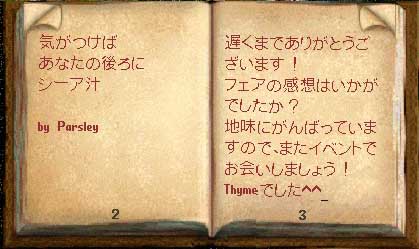 気がつけば
あなたの後ろに
シーア汁
by Parsley
2
遅くまでありがとうご
ざいます！
フェアの感想はいかが
でしたか？
地味にがんばっていま
すので、またイベントで
お会いしましょう！
Thymeでした^^_
3